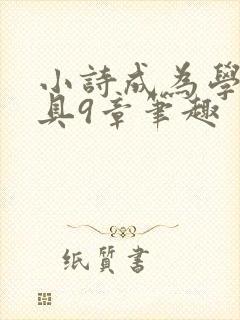 小詩成為學
具9章筆趣
纸質書